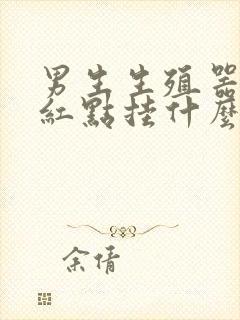 男生生殖器
紅點挂什麼
余倩